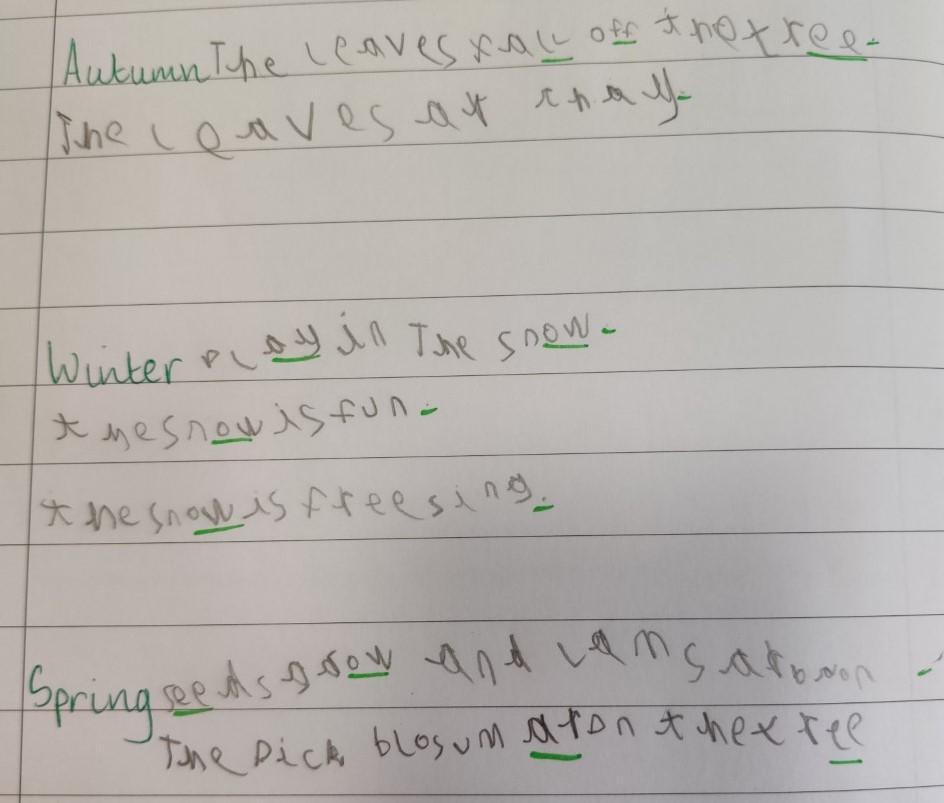 Autumn The leaves fall off the tree.
The leaves ar
Winter play in The snow.
the snow is fun.
the snow is freesing.
Spring seeds grow and lams ar born.
The Pick blosum ar on the tree